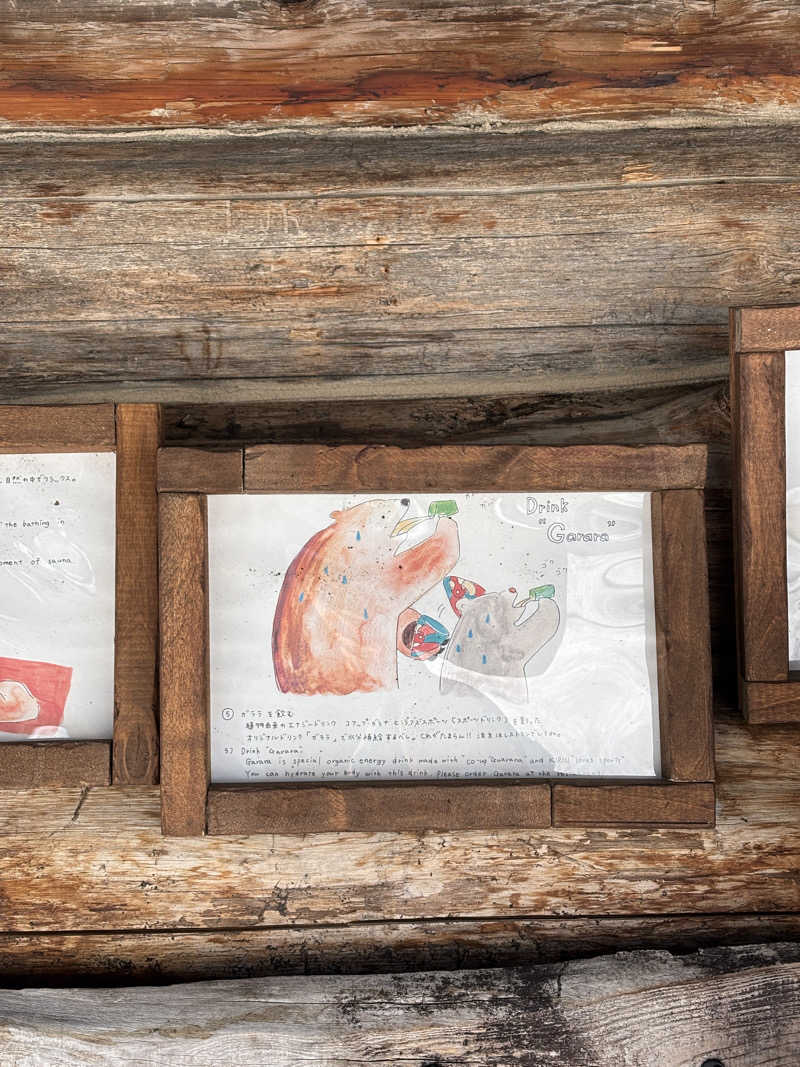 、自然の中でリラックス。
the bathing in
oment of sauna
Drink
"Garara"
ゴク
ゴク
⑤ ガララを飲む
植物由来のエナジードリンク コアップガラナ と ラブズスポーツ(スポーツドリンク)を割った
オリジナルドリンク「ガララ」で水分補給すべし。これがたまらん!! 注文はレストランでしてね。
5) Drink "Garara"
Garara is special organic energy drink made with "co-up Guarana" and KIRIN loves sports"
You can hydrate your body with this drink. Please order Garara at the